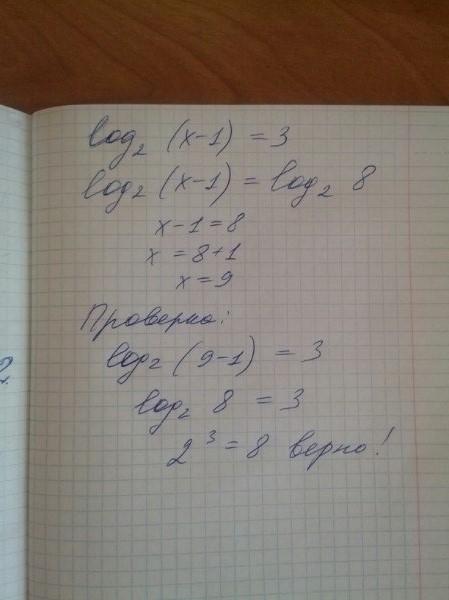 log₂ (x-1) = 3
log₂ (x-1) = log₂ 8
x-1=8
x = 8+1
x=9
Проверка:
log₂ (9-1) = 3
log₂ 8 = 3
2³ = 8 верно!